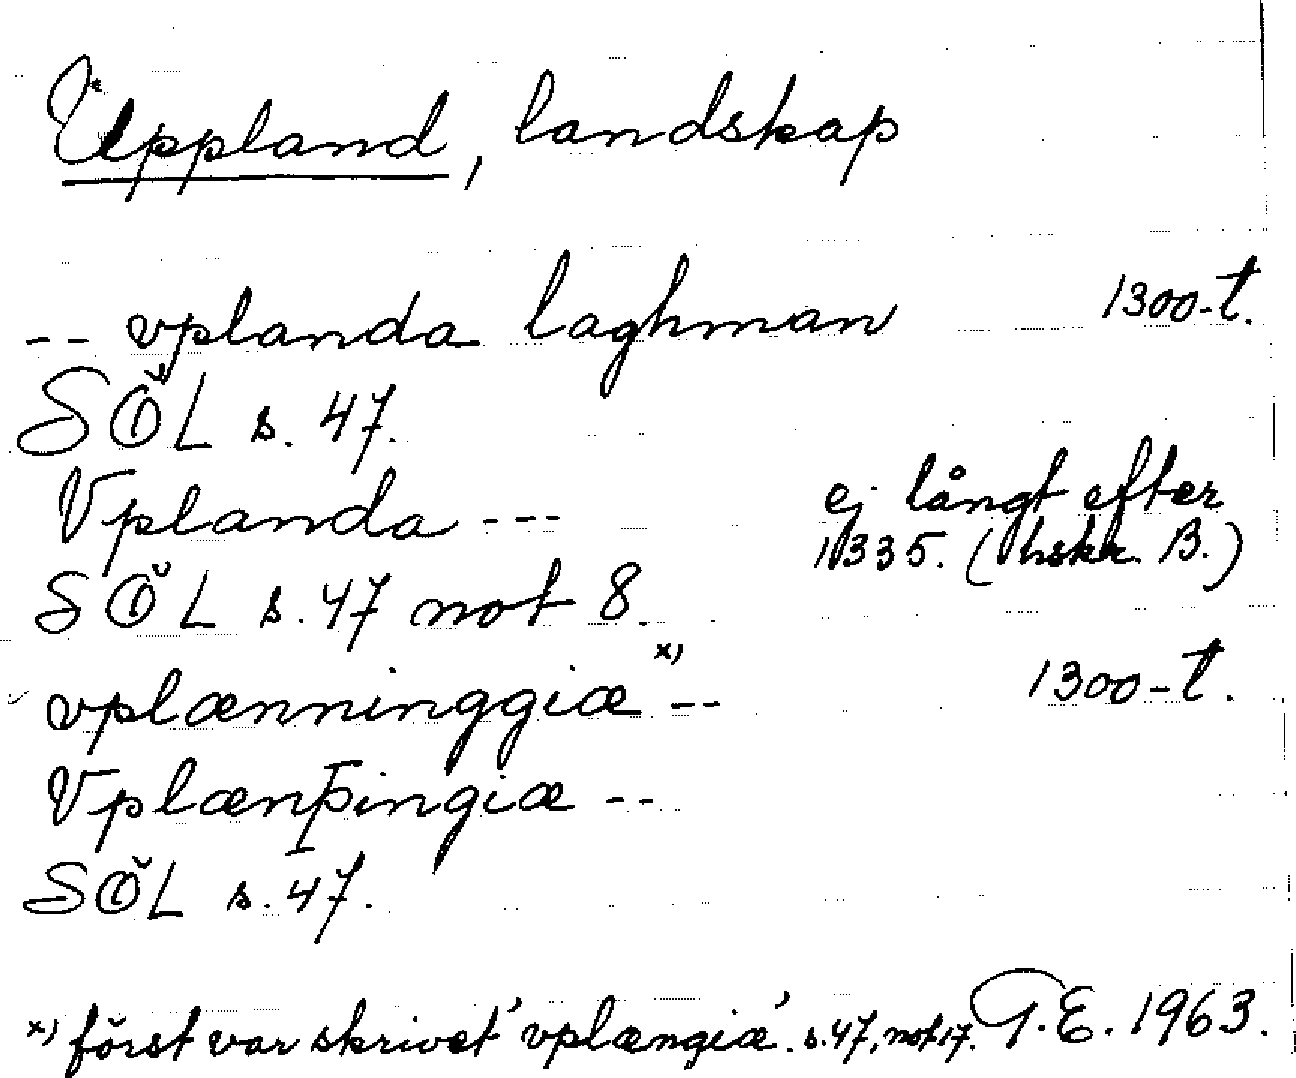 Uppland, landskap
-- vplanda laghman 1300-t.
SÖL s. 47.
Vplanda --- ej långt efter
1335. (hskr. B.)
SÖL s. 47 not 8.
vplænninggiæ x) -- 1300-t.
Vplænþingiæ --
SÖL s. 47.
x) först var skrivet 'vplængiæ'. s. 47, not 17. T.E. 1963.